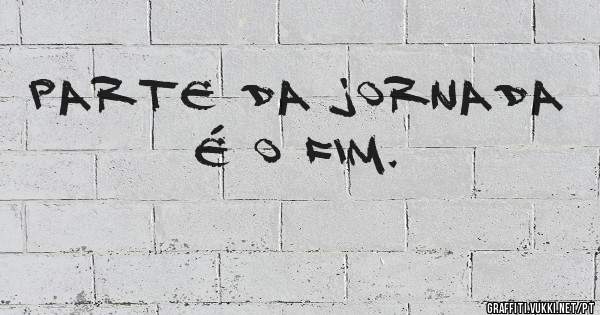 PARTE DA JORNADA
É O FIM.
GRAFFITI.VUKKI.NET/PT